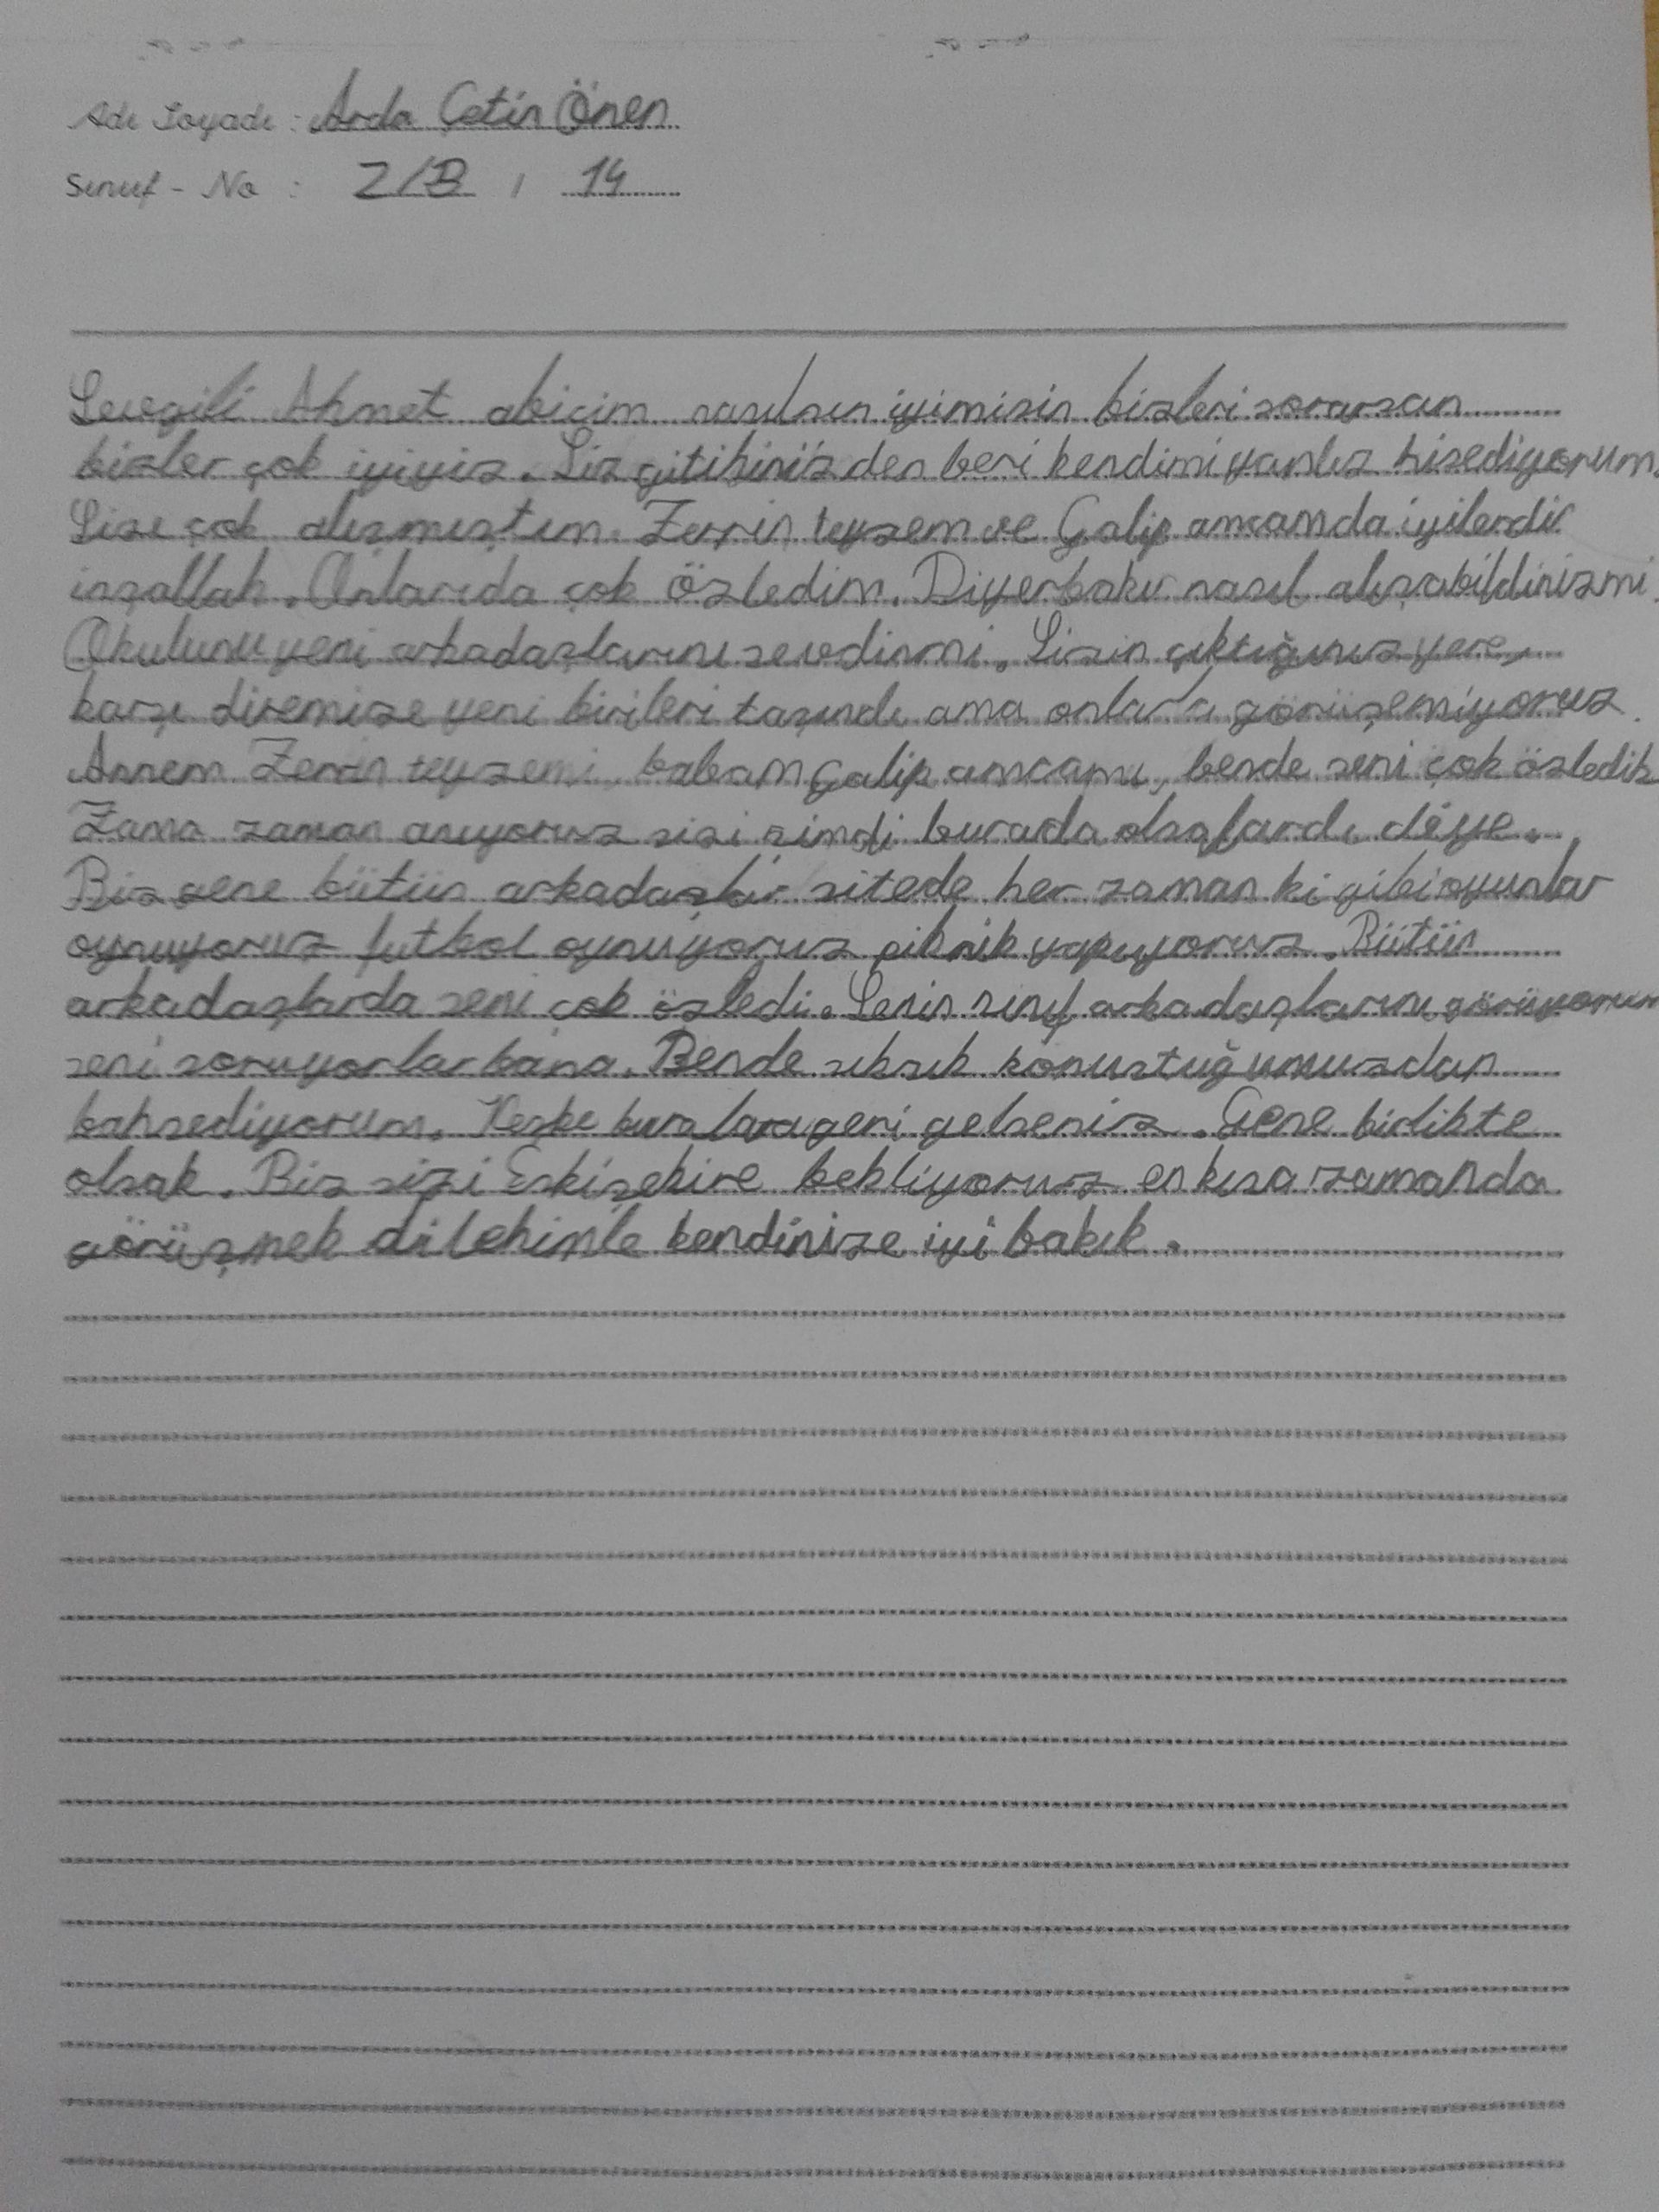 Adı Soyadı : Arda Çetin Önen
Sınıf - No : 2/B / 14
Sevgili Ahmet abicim nasılsın iyimisin bizleri sorarsan
bizler çok iyiyiz. Siz gitikiniz den beri kendimi yanlız hisediyorum.
Size çok alışmıştım. Zerrin teyzem ve Galip amcamda iyilerdir
inşallah. Onlarıda çok özledim. Diyerbakır nasıl alışabildinizmi.
Okulunu yeni arkadaşlarını sevdinmi. Sizin çıktığınız yere
karşı diremize yeni birileri taşındı ama onlarla görüşemiyoruz.
Annem Zerrin teyzemi babam Galip amcamı, bende seni çok özledik
Zama zaman anıyoruz sizi şimdi burada olsalardı diye.
Biz gene bütün arkadaşlar sitede her zaman ki gibi oyunlar
oynuyoruz futbol oynuyoruz piknik yapıyoruz. Bütün
arkadaşlarda seni çok özledi. Senin sınıf arkadaşlarını görüyorum
seni soruyorlar bana. Bende sıksık konuştuğumuzdan
bahsediyorum. Keşke buralara geri gelseniz. Gene birlikte
olsak. Biz sizi Eskişehire bekliyoruz en kısa zamanda
görüşmek dilekimle kendinize iyi bakık.